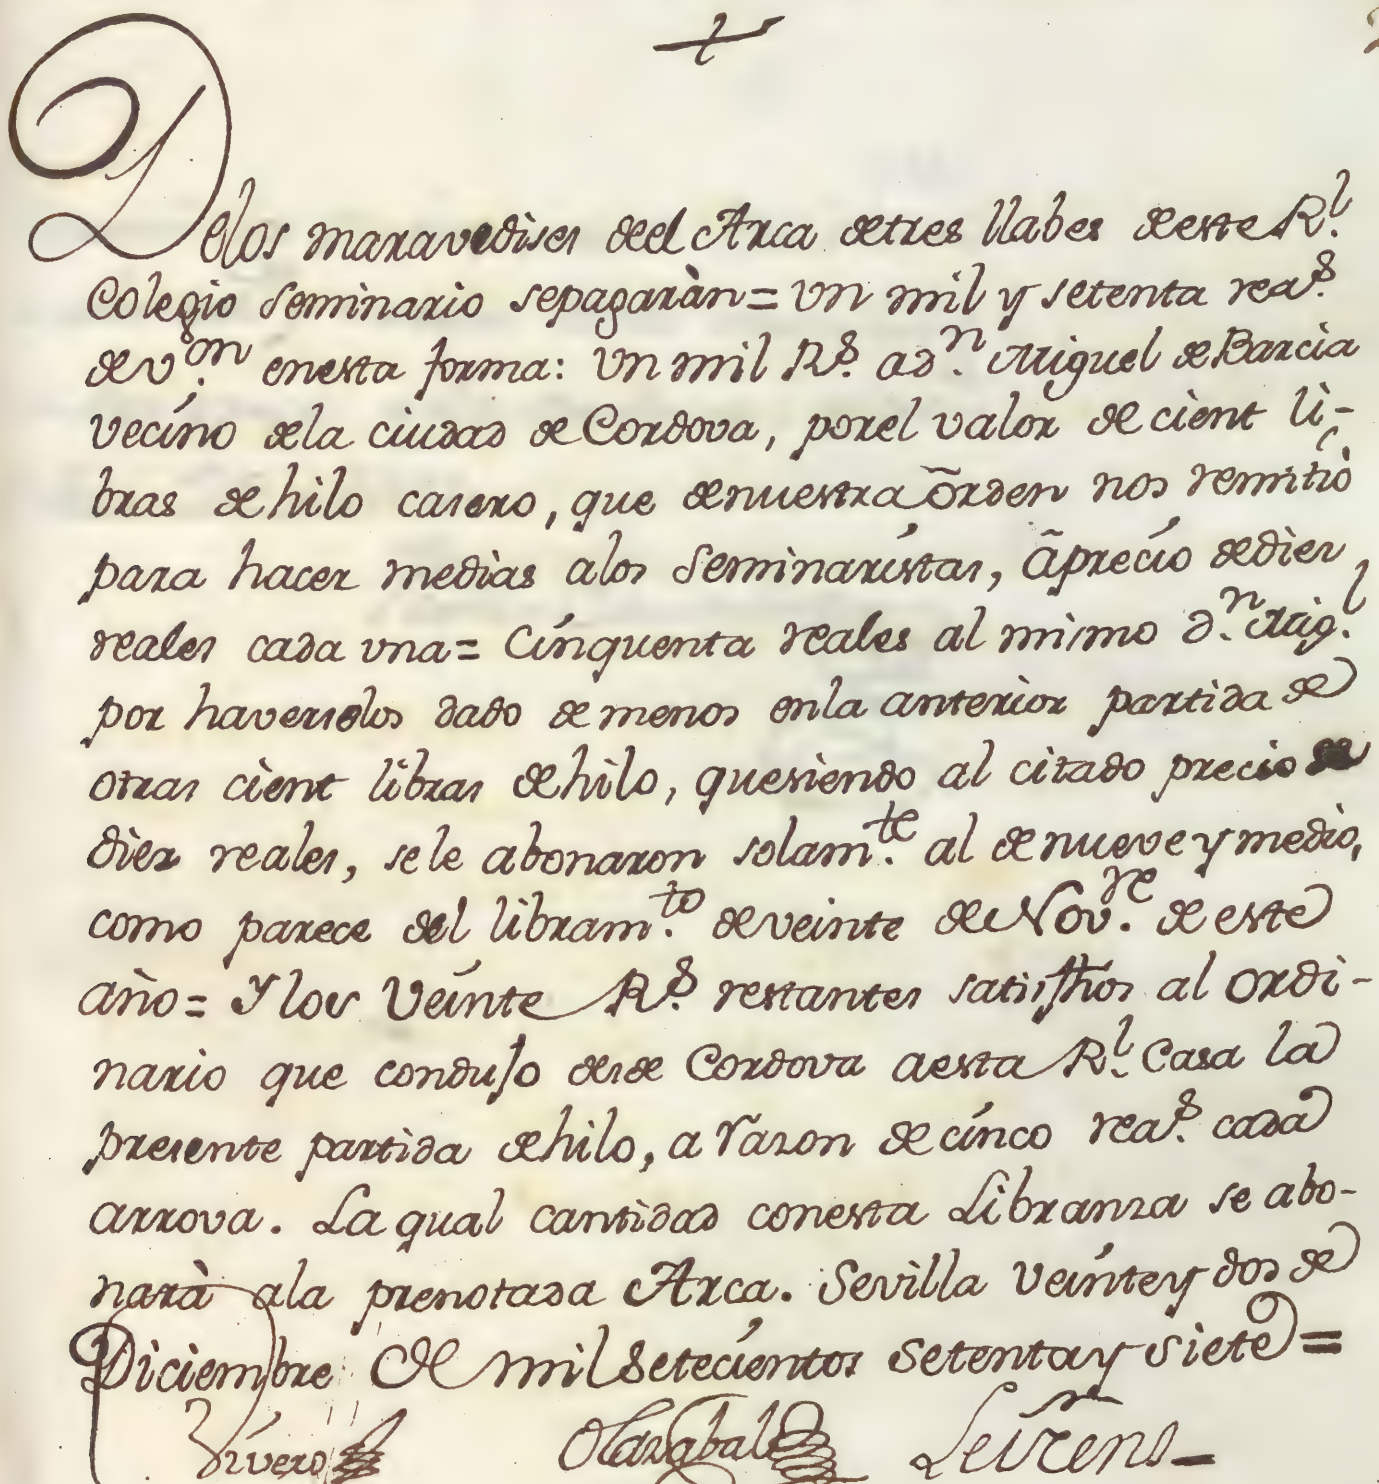 Delos maravedises deel Arca detres llabes deeste R.l
Colegio Seminario sepagaràn = Un mil y setenta rea.s
de v.on enesta forma: Un mil R.s a d.n Miguel de Barcia
vecino dela ciudad de Cordova, porel valor de cient li-
bras de hilo casero, que denuestra õrden nos remitiò
para hacer medias alos Seminaristas, ãprecio dediez
reales cada una = Cinquenta reales al mismo d.n Mig.l
por haverselos dado de menos enla anterior partida de
otras cient libras dehilo, quesiendo al citado precio de
diez reales, sele abonaron solam.te al de nueve y medio,
como parece del libram.to deveinte de Nov.re de este
año = Y los Veinte R.s restantes satisfhos al ordi-
nario que condujo desde Cordova aesta R.l Casa la
presente partida dehilo, a razon de cinco rea.s cada
arrova. La qual cantidad conesta Libranza se abo-
narà ala prenotada Arca. Sevilla Veinte y dos de
Diciembre de mil setecientos setenta y siete =
Vivero Olazabal